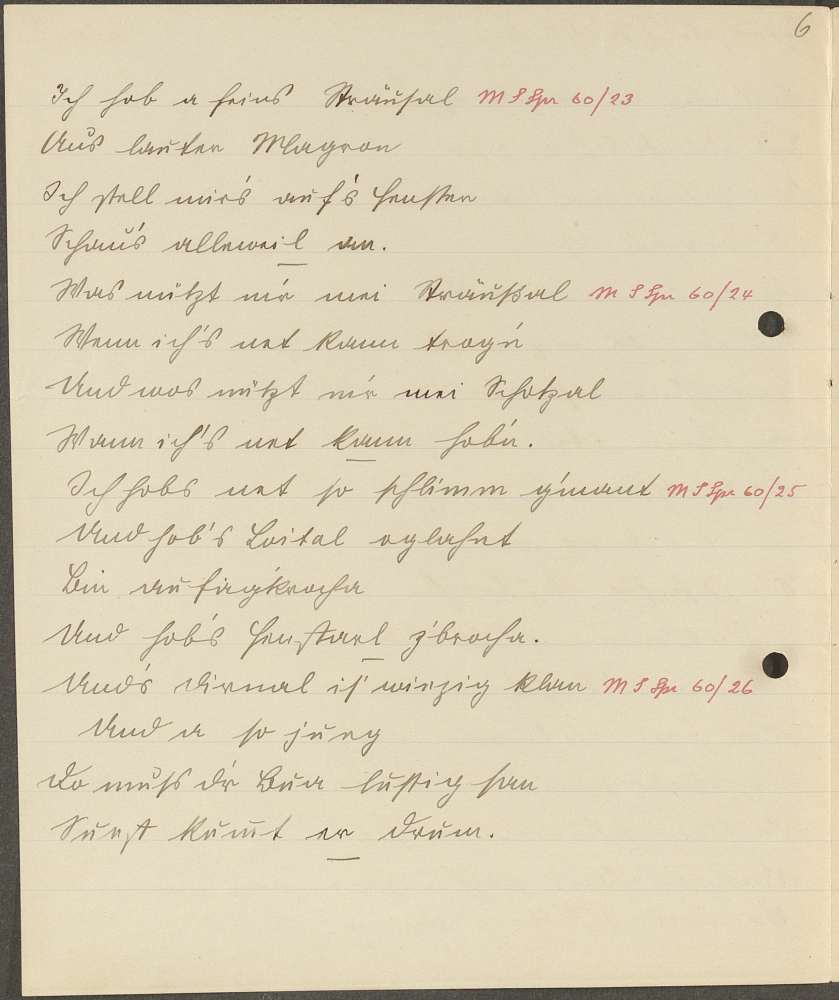 6
Ich hob a feins Sträusal M S Spr 60/23
Aus lauter Magron
Ich stell mir's auf's Fenster
Schau's alleweil an.
Was nützt mir mei Sträußal M S Spr 60/24
Wenn ich's net kann trog'n
Und wos nützt mir mei Schotzal
Wann ich's net kann hob'n.
Ich hobs net so schlimm g'mant M S Spr 60/25
Und hob's Loital oglahnt
Bin aufigkrocha
Und hob's Fenstarl z'brocha.
Und's Dirnal is' winzig klan M S Spr 60/26
Und a so jung
Do muss d'r Bua lustig san
Sunst kummt er drum.